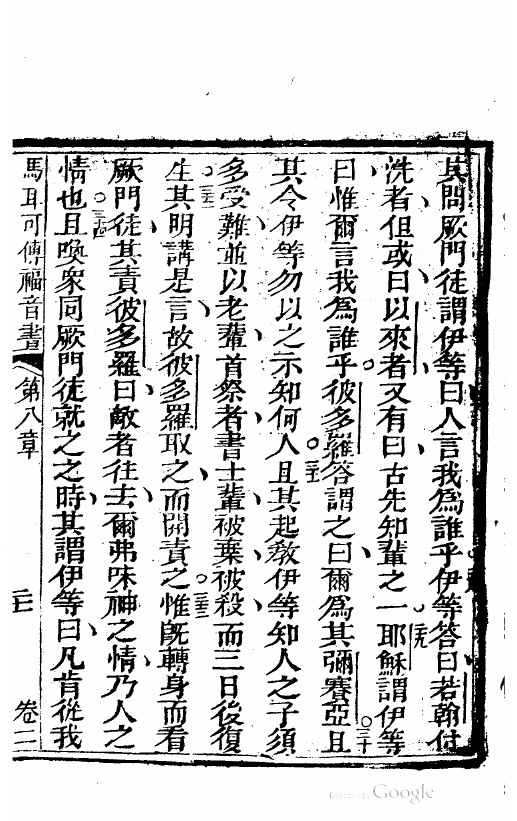 其問厥門徒謂伊等曰人言我為誰乎伊等答曰若翰付
洗者但或曰以來者又有曰古先知輩之一。二九耶穌謂伊等
曰惟爾言我為誰乎彼多羅答謂之曰爾為其彌賽亞。三十且
其令伊等勿以之示知何人。三一且其起教伊等知人之子須
多受難並以老輩首祭者書士輩被棄被殺而三日後復
生。三二其明講是言故彼多羅取之而開責之。三三惟既轉身而看
厥門徒其責彼多羅曰敵者往去爾弗味神之情乃人之
情也。三四且喚衆同厥門徒就之之時其謂伊等曰凡肯從我
馬耳可傳福音書 第八章 二一 卷二
Digitized by Google